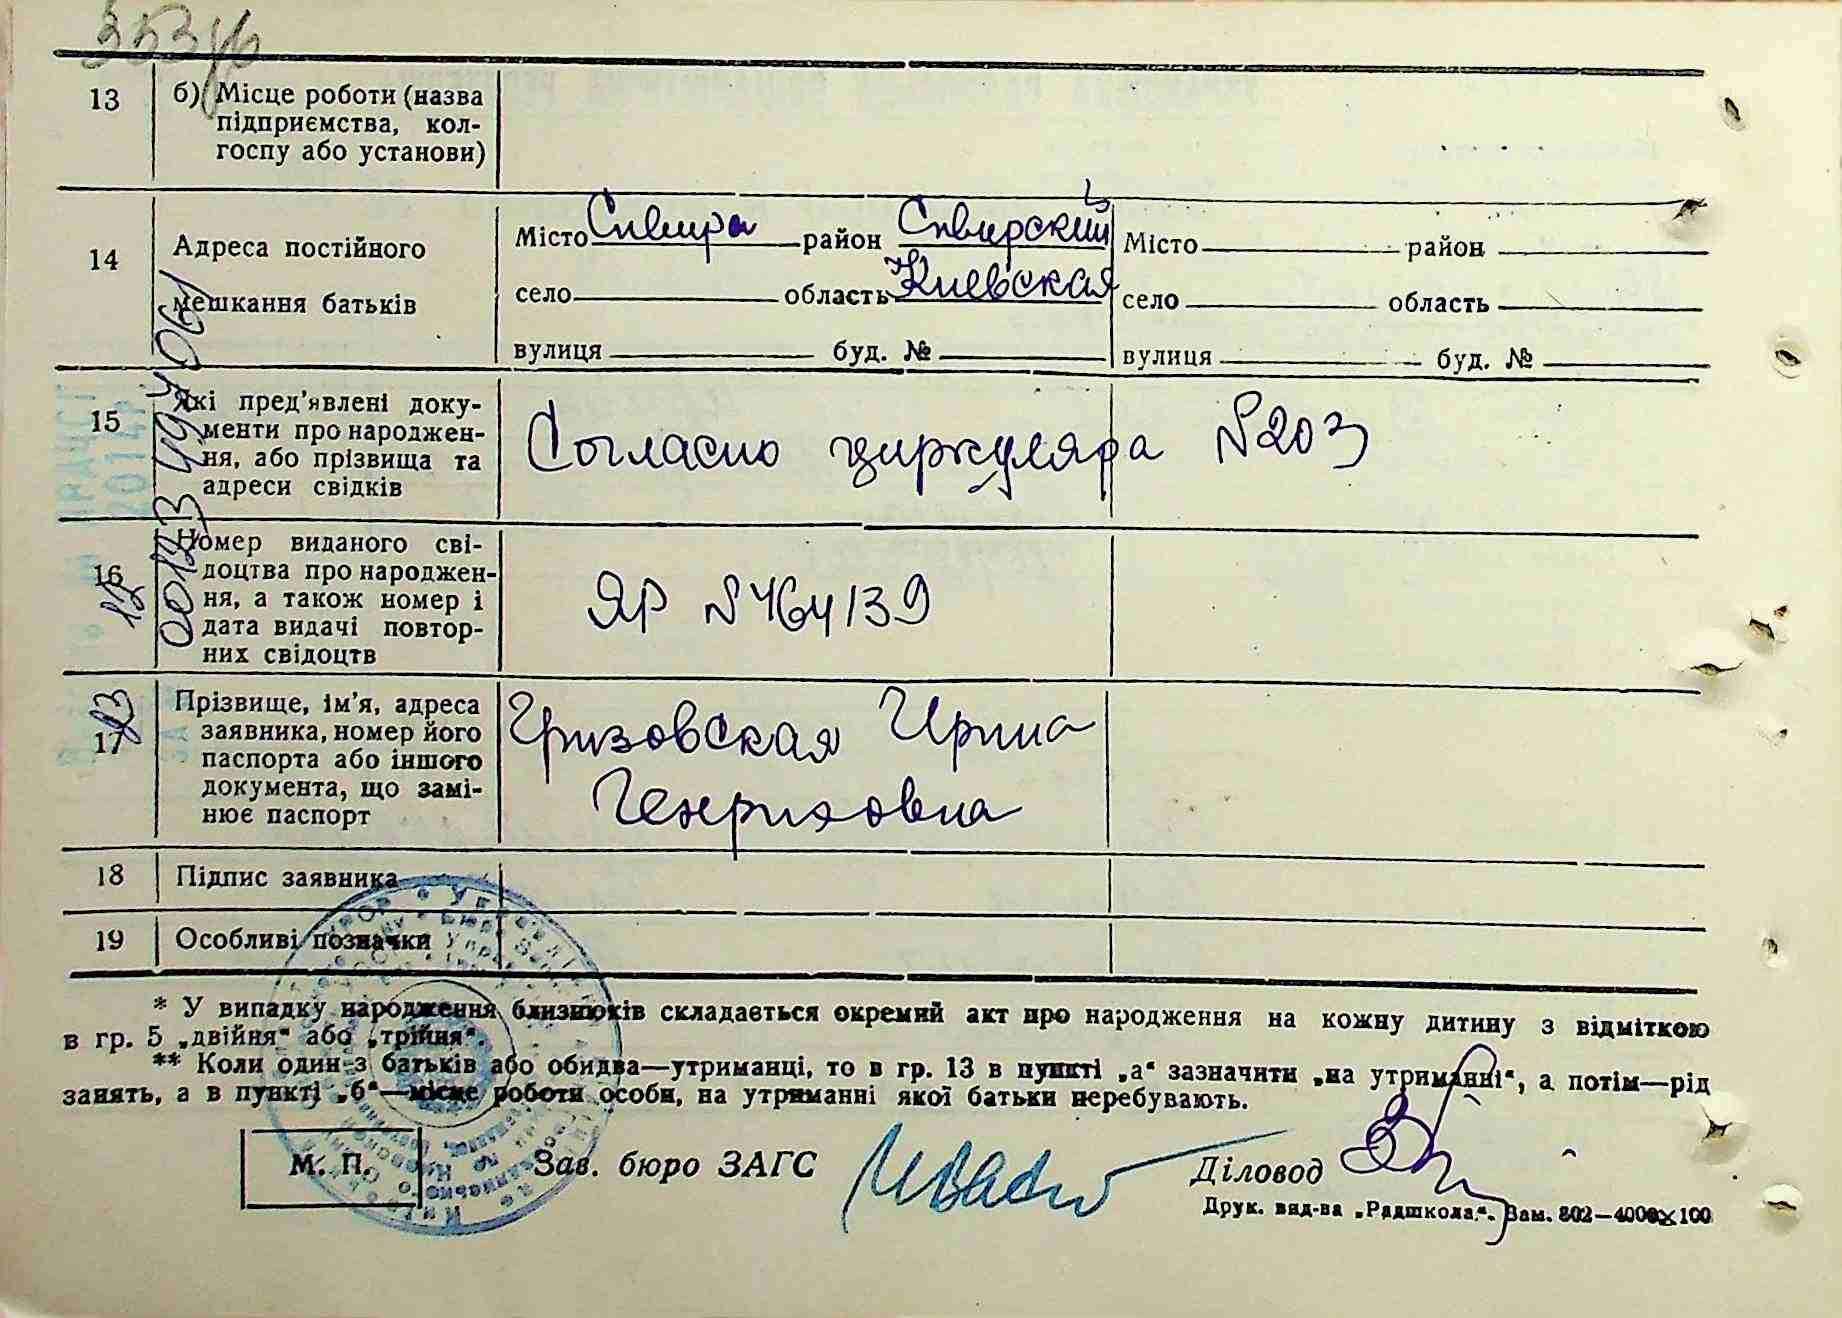 353/6
13 б) Місце роботи (назва
підприємства, кол-
госпу або установи)
14 Адреса постійного
мешкання батьків
Місто Сквира район Сквирский
село область Киевская
вулиця буд. №
Місто район
село область
вулиця буд. №
15 Які пред'явлені доку-
менти про народжен-
ня, або прізвища та
адреси свідків
Согласно циркуляра №203
16 Номер виданого сві-
доцтва про народжен-
ня, а також номер і
дата видачі повтор-
них свідоцтв
ЯР №464139
17 Прізвище, ім'я, адреса
заявника, номер його
паспорта або іншого
документа, що замі-
нює паспорт
Гризовская Ирина
Генриховна
18 Підпис заявника
19 Особливі позначки
* У випадку народження близнюків складається окремий акт про народження на кожну дитину з відміткою
в гр. 5 „двійня“ або „трійня“.
** Коли один з батьків або обидва—утриманці, то в гр. 13 в пункті „а“ зазначити „на утриманні“, а потім—рід
занять, а в пункті „б“—місце роботи особи, на утриманні якої батьки перебувають.
М. П. Зав. бюро ЗАГС Діловод
Друк. вид-ва „Радшкола“. Зам. 802—4000×100